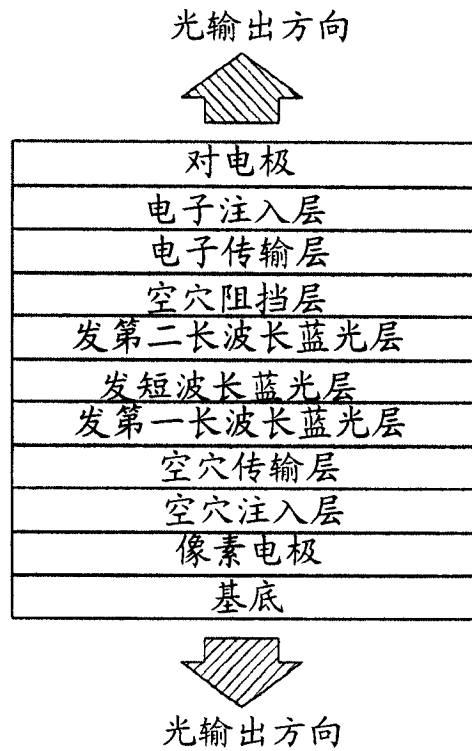 光输出方向
对电极
电子注入层
电子传输层
空穴阻挡层
发第二长波长蓝光层
发短波长蓝光层
发第一长波长蓝光层
空穴传输层
空穴注入层
像素电极
基底
光输出方向